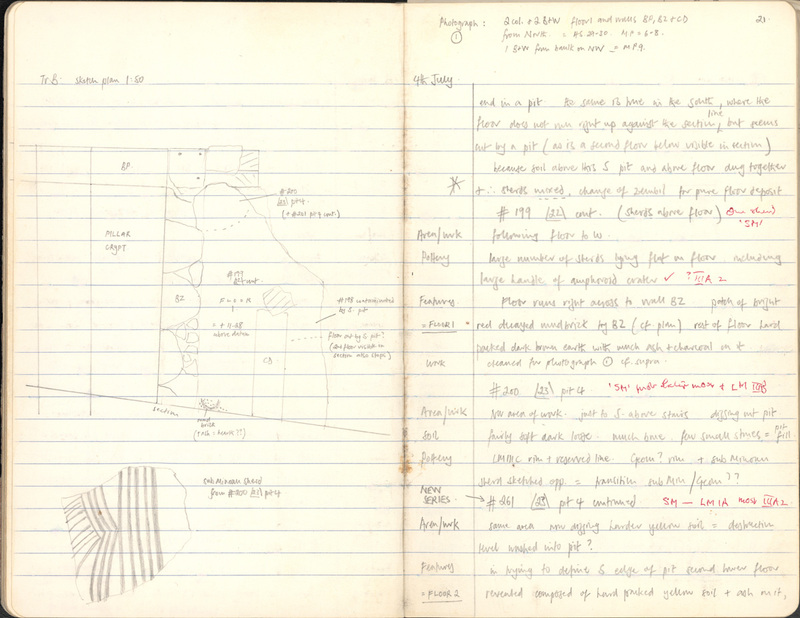 Tr. B: sketch plan 1:50
BP
PILLAR
CRYPT
BZ
# 200
[23] pit 4
(+ #261 pit 4 cont.)
#199
FLOOR
+ 11.68
above datum
CD
by S. pit
floor cut by S pit?
(2nd floor visible in
section also stops)
section
mud
brick
(+ash = hearth??)
sub Minoan sherd
from #200 [23] pt 4
Photograph: 2 col. + 2 B+W floor 1 and walls BP, BZ + CD
① from North. = M.P = 6-8.
1 B+W from baulk on NW = M.P 9.
4th July
end in a pit. The same is true in the south, where the
floor does not run right up against the section line, but seems
cut by a pit (as is a second floor below visible in section)
because soil above this S pit and above floor dug together
+ ∴ sherds mixed, change of zembil for pure floor deposit
# 199 [22] cont. (sherds above floor) One sherd
'SM'
Area/work following floor to W.
Pottery large number of sherds lying flat on floor including
large handle of amphoroid crater ✓ ? III A 2
Features Floor runs right across to wall BZ patch of bright
= FLOOR 1 red decayed mudbrick by BZ (cf plan) rest of floor hard
packed dark brown earth with much ash + charcoal on it
work cleaned for photograph ① cf. supra.
# 200 [23] pit 4 'SM' + LM IIIB
Area/work New area of work just to S. above stairs digging out pit
Soil fairly soft dark loose. much bone. few small stones = pit fill.
Pottery LMIIIC rim + reserved line. Geom? rim + sub Minoan
sherd sketched opp. = transition sub Min/Geom??
NEW
SERIES → # 261 [23] pt 4 continued SM – LM IA most III A 2
Area/work same area now digging harder yellow soil = destruction
level washed into pit?
Features in trying to define S edge of pit second lower floor
= FLOOR 2 revealed composed of hard packed yellow soil + ash on it,